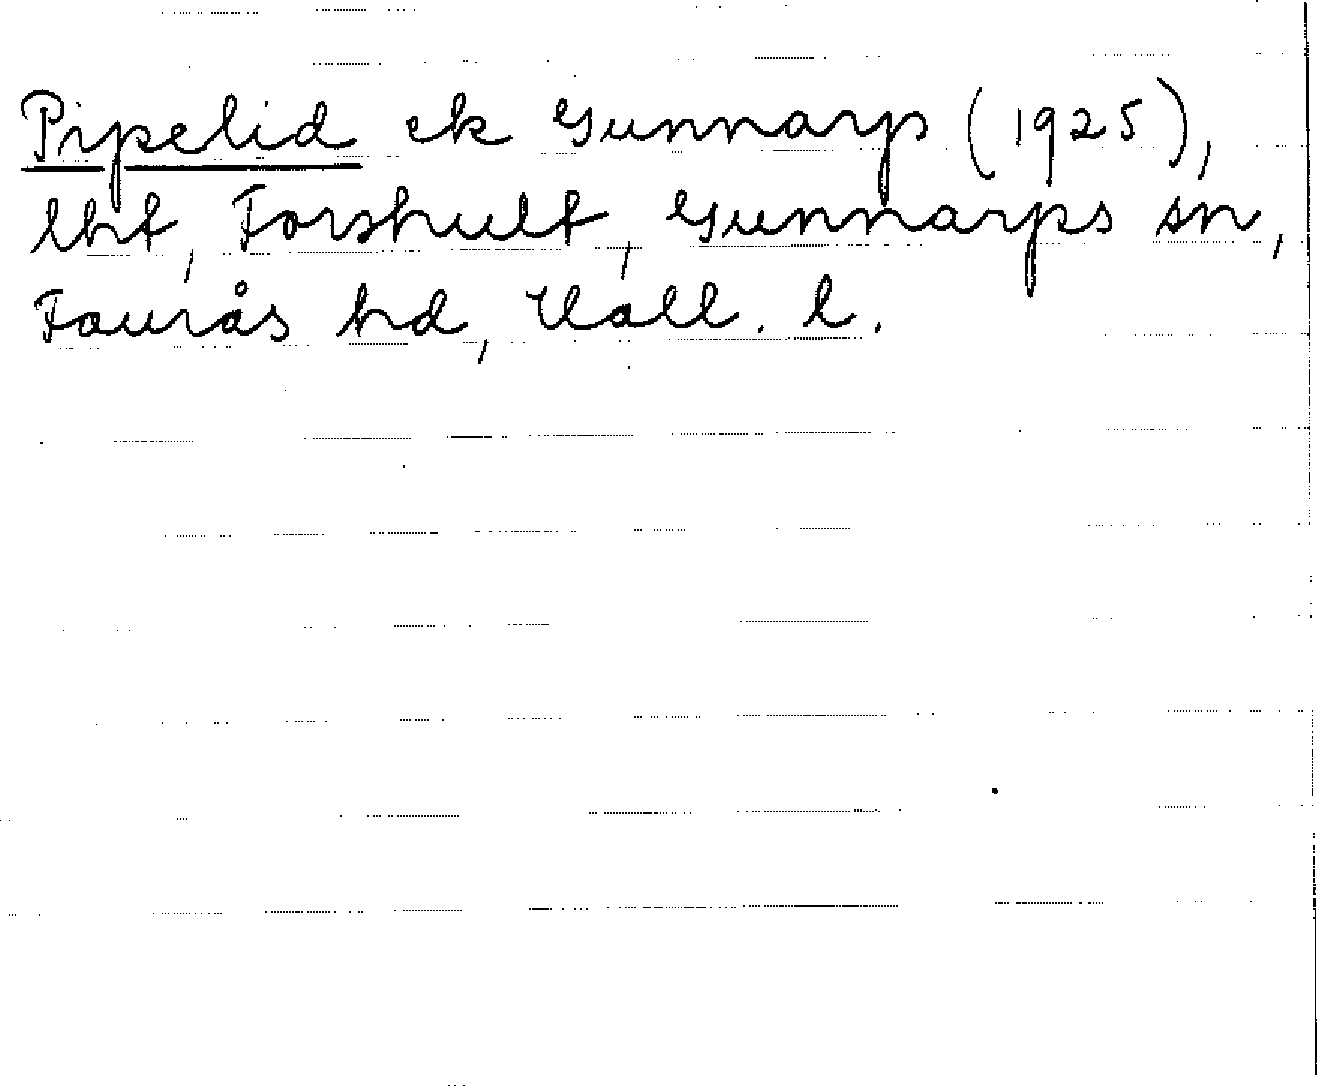 Pipelid ek Gunnarp (1925),
lht, Forshult, Gunnarps sn,
Faurås hd, Hall. l.